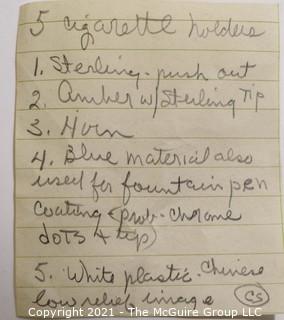 5 cigarette holders
1. Sterling - push out
2. Amber w/ Sterling Tip
3. Horn
4. Blue material also
used for fountain pen
coating (prob. chrome
dots & tip)
5. White plastic. Chinese
low relief image
CS
Copyright 2021 - The McGuire Group